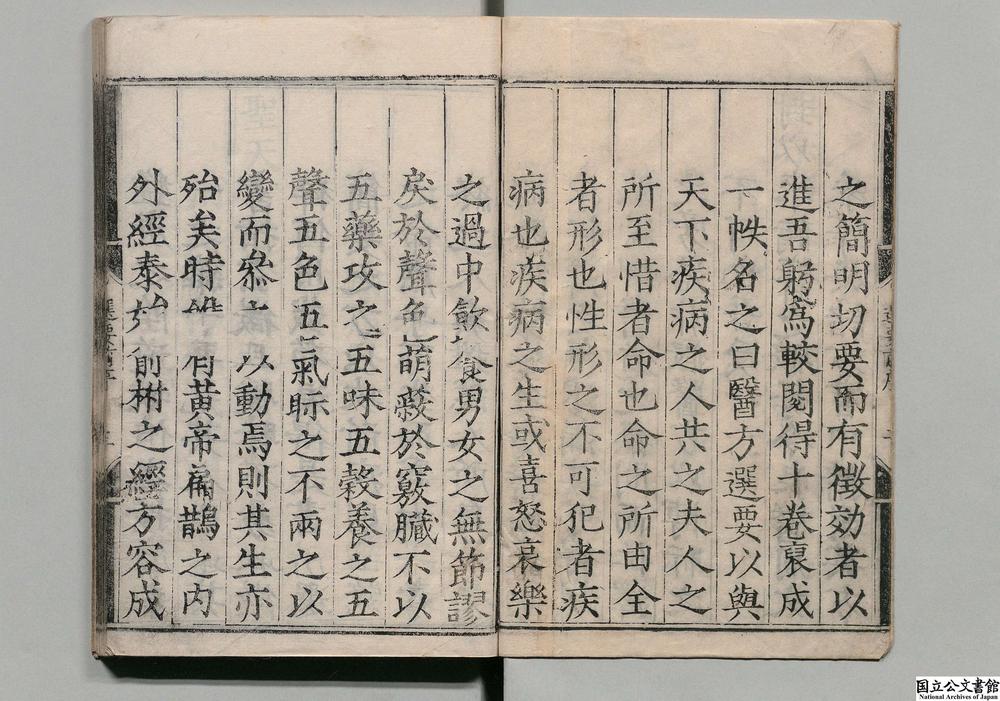 之簡明切要而有徵効者以
進吾躬爲較閱得十卷裒成
一帙名之曰醫方選要以與
天下疾病之人共之夫人之
所至惜者命也命之所由全
者形也性形之不可犯者疾
病也疾病之生或喜怒哀樂
之過中飮食男女之無節謬
戾於聲色萌蘖於竅臟不以
五藥攻之五味五穀養之五
聲五色五氣眎之不兩之以
變而叅之以動焉則其生亦
殆矣時惟有黃帝扁鵲之内
外經泰始俞柎之經方容成
選要前序
二
国立公文書館
National Archives of Japan